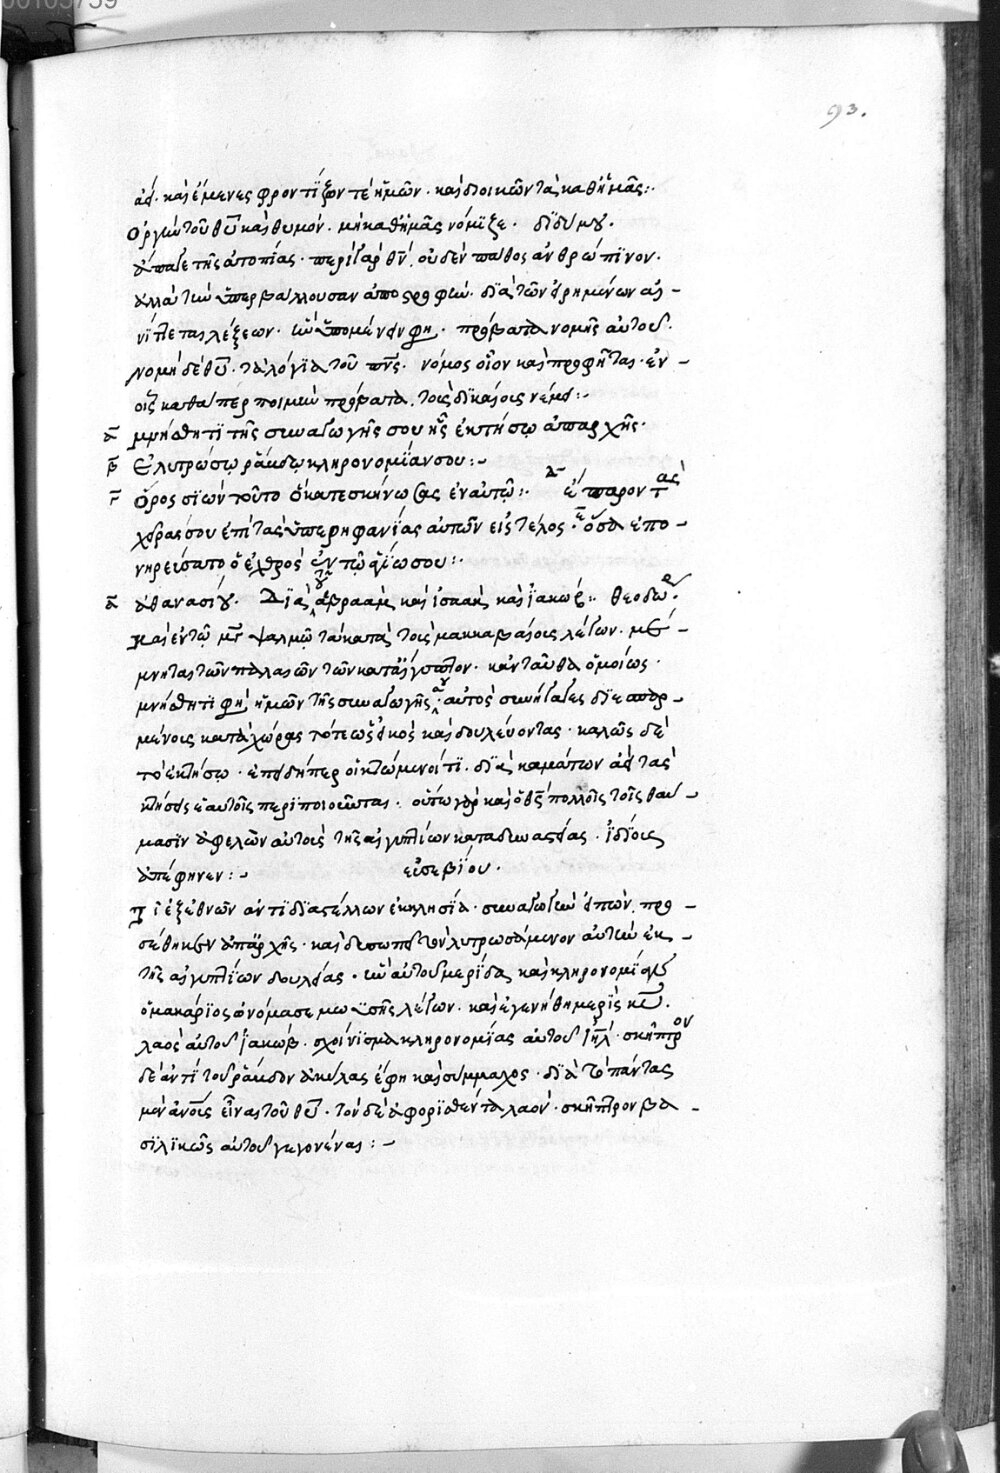 93.
αεί· καὶ ἔμενες φροντίζων τε ἡμῶν· καὶ διοικῶν τὰ καθ ἡμᾶς:·
ὀργὴν τοῦ θῡ καὶ θυμόν· μὴ καθ ἡμᾶς νόμιζε· διδύμου·
ἄπαγε τῆς ἀτοπίας· περὶ γὰρ θν̄· οὐδὲν πάθος ἀνθρώπινον·
ἀλλὰ τὴν ὑπερβάλλουσαν ἀποστροφὴν· διὰ τῶν εἰρημένων αἰ-
νίττεται λέξεων· ὧ ὑπομένειν φη· πρόβατα νομῆς αὐτοῦ·
νομὴ δὲ θῡ· τὰ λόγια τοῦ πν̄ς· νόμος οἷον καὶ προφῆται· ἐν
οἷς καθάπερ ποιμὴν πρόβατα· τοὺς δικαίους νέμει:-
ᾱ μνήσθητι τῆς συναγωγῆς σου ἧς ἐκτήσω ἀπαρχῆς·
β̄ Ἐλυτρώσω ῥάβδω κληρονομίαν σου:-
γ̄ Ὄρος σιὼν τοῦτο ὃ κατεσκήνωσας ἐν αὐτῶ:· δ̄ ἔπαρον τὰς
χεῖρας σου ἐπὶ τὰς ὑπερηφανίας αὐτῶν εἰς τέλος· ε̄ ὅσα ἐπο-
νηρεύσατο ὁ ἐχθρὸς ἐν τῶ ἁγίω σου:·
ᾱ ἀθανασίου· Διὰ τοῦ ἀβραὰμ καὶ ἰσαὰκ καὶ ἰακώβ:· θεοδώρ·
Καὶ ἐν τῶ μγ̄ ψαλμῶ τὰ κατὰ τοὺς μακκαβαίους λέγων· μέ-
μνηται τῶν παλαιῶν τῶν κατ αἴγυπτον· κἀνταῦθα ὁμοίως·
μνήσθητι φη· ἡμῶν τῆς συναγωγῆς· αὐτὸς συνήγαγες διεσπαρ-
μένους κατὰ χώρας τότε ὡς εἰκὸς καὶ δουλεύοντας· καλῶς δὲ
τὸ ἐκτήσω· ἐπειδήπερ οἱ κτώμενοί τι· διὰ καμάτων ἀεὶ τὰς
κτήσεις ἑαυτοῖς περιποιοῦνται· οὕτω γὰρ καὶ ὁ θς̄ πολλοῖς τοῖς θαύ-
μασιν ἀφελὼν αὐτοὺς τῆς αἰγυπτίων καταδυναστείας· ἰδίους
ἀπέφηνεν:- εὐσεβίου·
Τὴν ἐξ ἐθνῶν ἀντιδιαστέλλων ἐκκλησία· συναγωγὴν εἰπὼν· προ-
σέθηκεν ἀπαρχῆς· καὶ δεσωπ τὸν λυτρωσάμενον αὐτὴν ἐκ
τῆς αἰγυπτίων δουλείας· ἣν αὐτοῦ μερίδα καὶ κληρονομίαν
ὁ μακάριος ὠνόμασε μωϋσῆς λέγων· καὶ ἐγενήθη μερὶς κῡ·
λαὸς αὐτοῦ ἰακώβ· σχοίνισμα κληρονομίας αὐτοῦ ιηλ̄· σκῆπτρον
δὲ ἀντὶ τοῦ ῥάβδον ἀκύλας ἔφη καὶ σύμμαχος· διὰ τὸ πάντας
μὲν ἀνους εἶναι τοῦ θῡ· τὸν δὲ ἀφορισθέντα λαὸν· σκῆπτρον βα-
σιλικῶς αὐτοῦ γεγονέναι:-